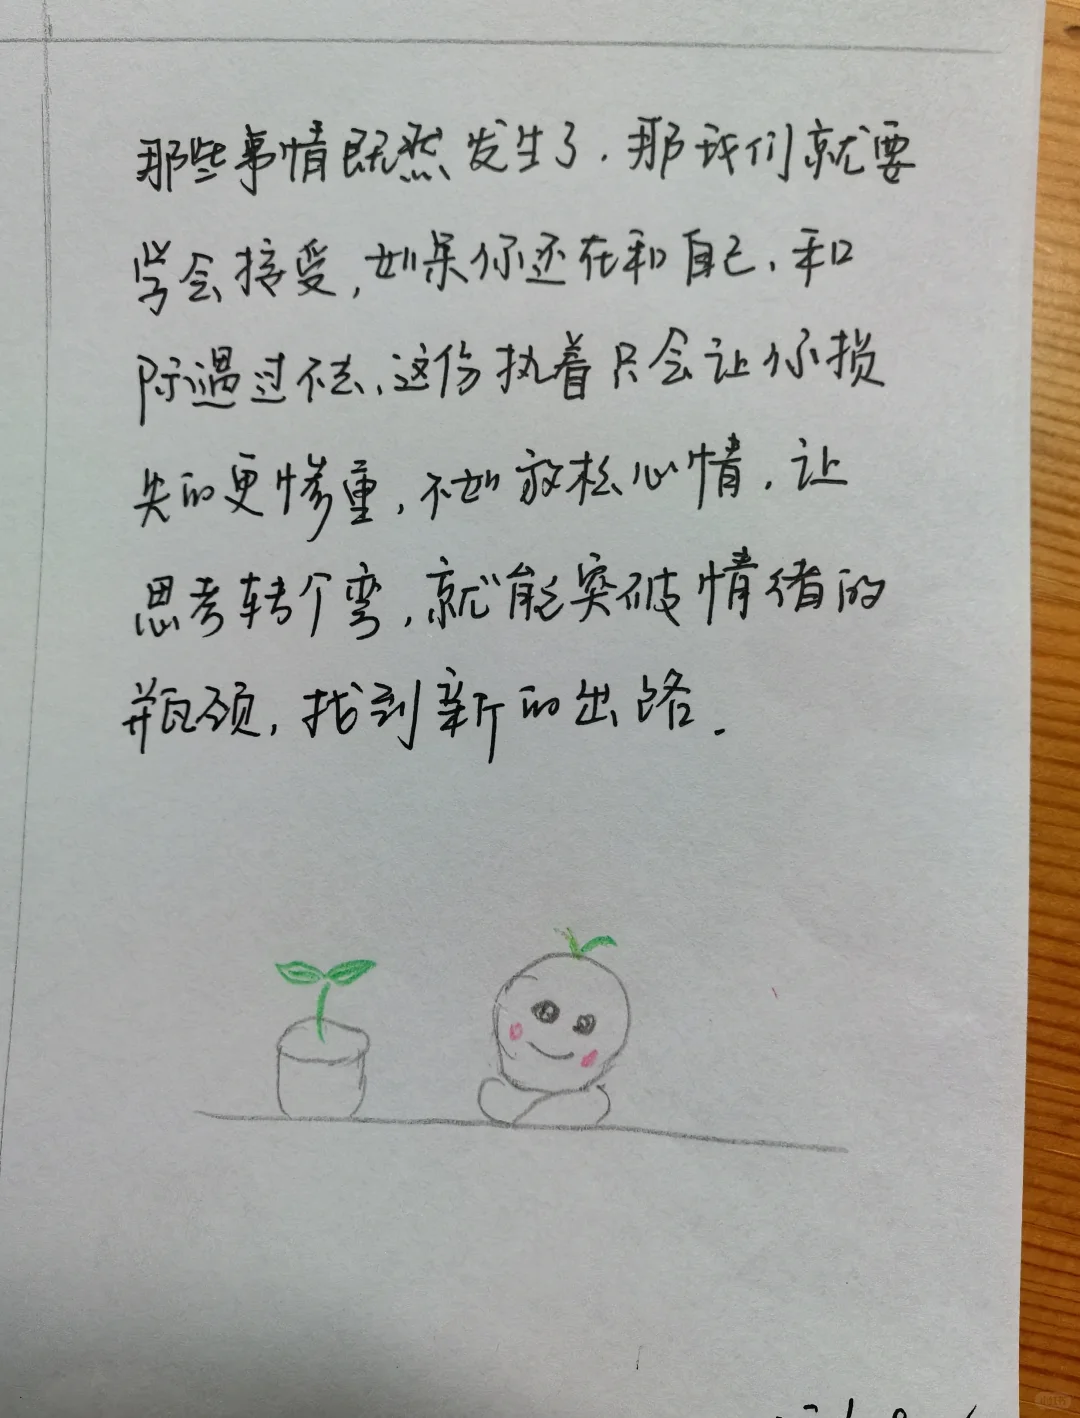 那些事情既然发生了.那我们就要
学会接受,如果你还在和自己、和
际遇过不去、这份执着只会让你损
失的更惨重,不如放松心情,让
思考转个弯,就能突破情绪的
瓶颈,找到新的出路.